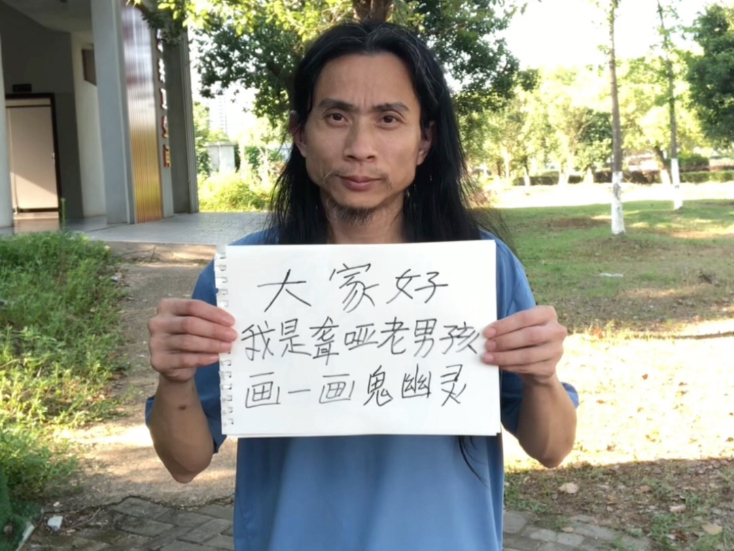 大家好
我是聋哑老男孩
画一画鬼幽灵